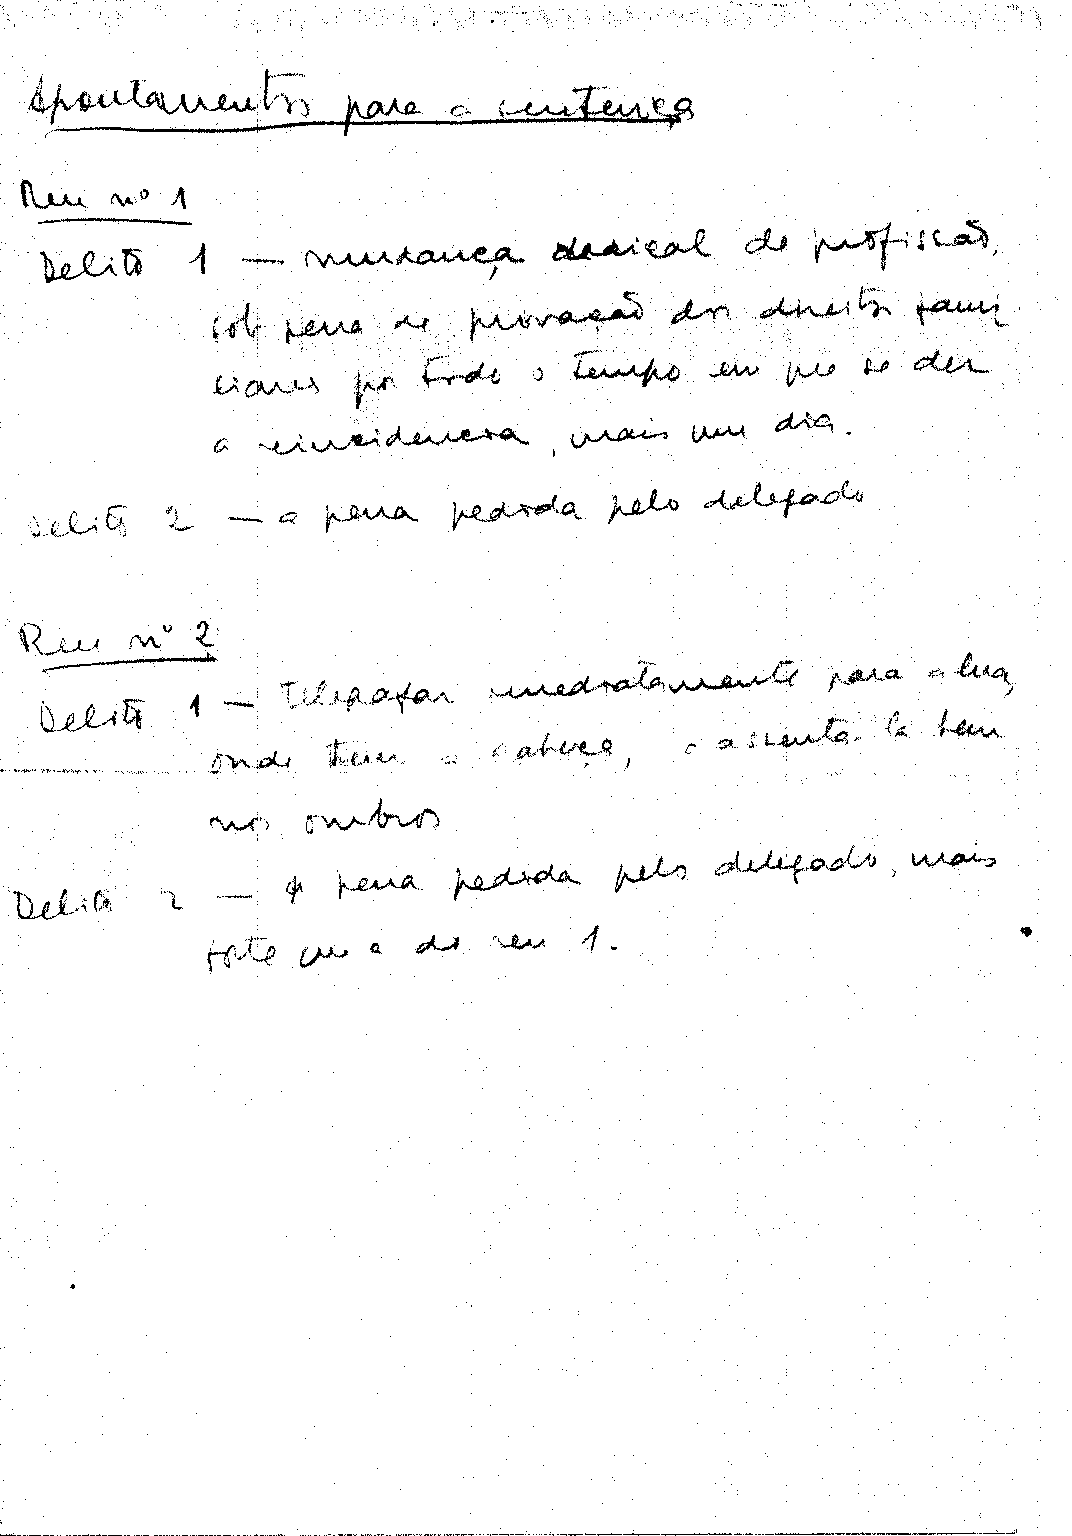 Apontamentos para a sentença
Reu nº 1
Delito 1 — mudança radical de profissão,
sob pena de privação dos direitos
por todo o tempo em que se der
a reincidencia, mais um dia.
Delito 2 — a pena pedida pelo delegado
Reu nº 2
Delito 1 — imediatamente para a lua,
onde tem a cabeça, e assenta-la bem
nos ombros
Delito 2 — A pena pedida pelo delegado, mais
forte que a do reu 1.